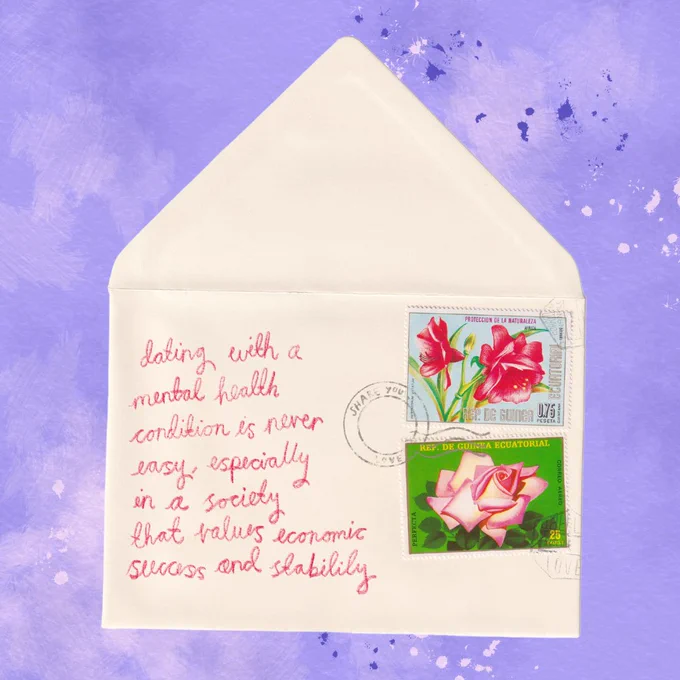 dating with a
mental health
condition is never
easy, especially
in a society
that values economic
success and stability
PROTECCION DE LA NATURALEZA
REP. DE GUINEA
ECUATORIAL
0,75
PESETA
SHARE YOU
REP. DE GUINEA ECUATORIAL
PERFECTA
CORREO AEREO
25
LOVE